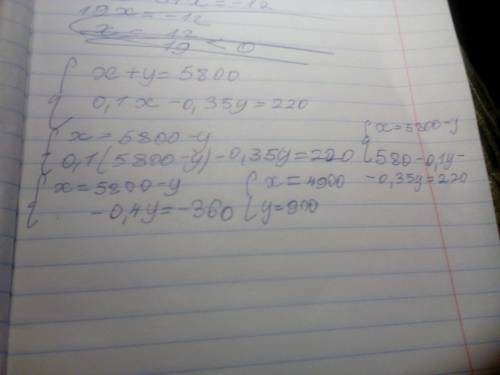 19x = -12
x = 12
19 < 0
x + y = 5800
0,1x - 0,35y = 220
x = 5800 - y
0,1(5800 - y) - 0,35y = 220
x = 5800 - y
580 - 0,1y -
- 0,35y = 220
x = 5800 - y
- 0,4y = -360
x = 4900
y = 900